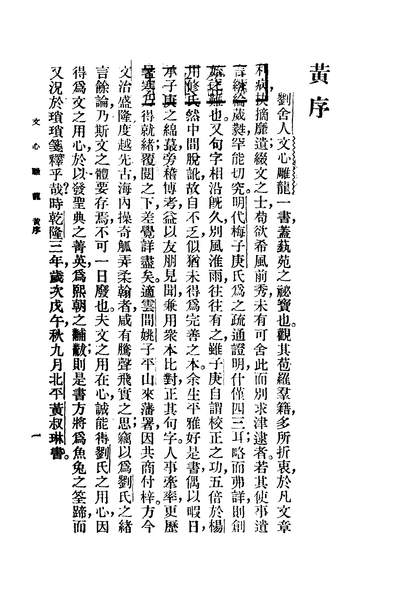 黃序
劉舍人文心雕龍一書,蓋藝苑之祕寶也。觀其苞羅羣籍,多所折衷,於凡文章
利病,抉摘靡遺;綴文之士,苟欲希風前秀,未有可舍此而別求津逮者。若其使事遣
言,綸葳蕤,罕能切究。明代梅子庚氏爲之疏通證明,什僅四三耳;略而弗詳,則創
始之難也。又句字相沿旣久,別風淮雨,往往有之,雖子庚自謂校正之功五倍於楊
用修氏,然中間脫訛,故自不乏,似猶未得爲完善之本。余生平雅好是書,偶以暇日,
承子庚之綿蕞,旁稽博考,益以友朋見聞,兼用衆本比對,正其句字。人事牽率,更歷
寒暑,乃得就緒;覆閱之下,差覺詳盡矣。適雲間姚子平山來藩署,因共商付梓。方今
文治盛隆,度越先古,海內操奇觚弄柔翰者,咸有騰聲飛實之思;竊以爲劉氏之緒
言餘論,乃斯文之體要存焉,不可一日廢也。夫文之用在心,誠能得劉氏之用心,因
得爲文之用心,於以發聖典之菁英,爲熙朝之黼黻,則是書方將爲魚兔之筌蹄,而
又況於瑣瑣箋釋乎哉?時乾隆三年歲次戊午秋九月,北平黃叔琳書。
文心雕龍 黃序
一